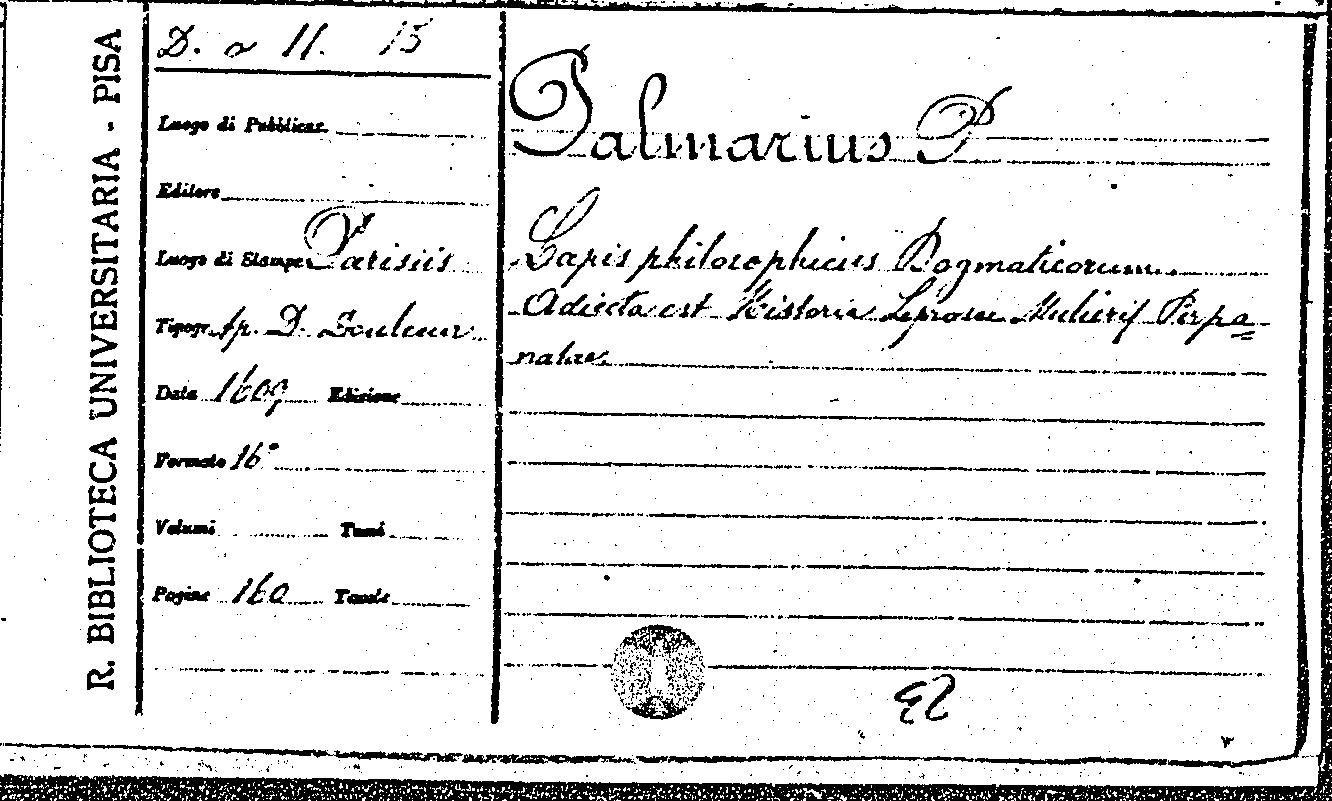 R. BIBLIOTECA UNIVERSITARIA - PISA
D. a 11. 15
Luogo di Pubblicaz.
Editore
Luogo di Stampa Parisiis
Tipogr. Ap. D.
Data 1609 Edizione
Formato 16°
Volumi Tomi
Pagine 160 Tavole
Palmarius P
Lapis philosophicus Dogmaticorum.
Adiecta est Historia Leprosae Mulieris Perpa=
natae.